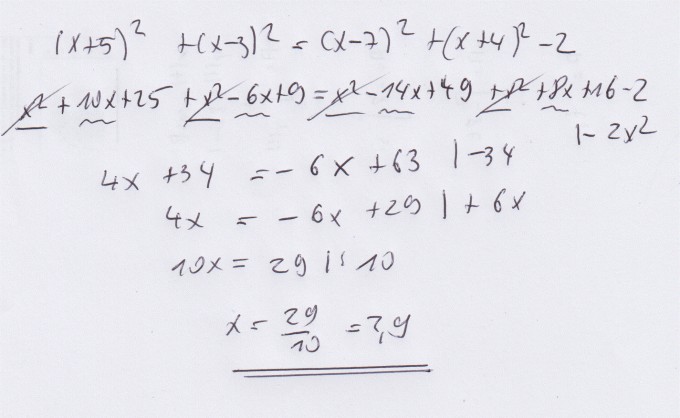 (x+5)² +(x-3)² = (x-7)² +(x+4)² -2
x² + 10x+25 +x² -6x+9 = x² -14x+49 +x² +8x +16-2
|- 2x²
4x +34 = - 6x +63 |-34
4x = - 6x +29 | + 6x
10x = 29 |: 10
x = 29/10 = 2,9